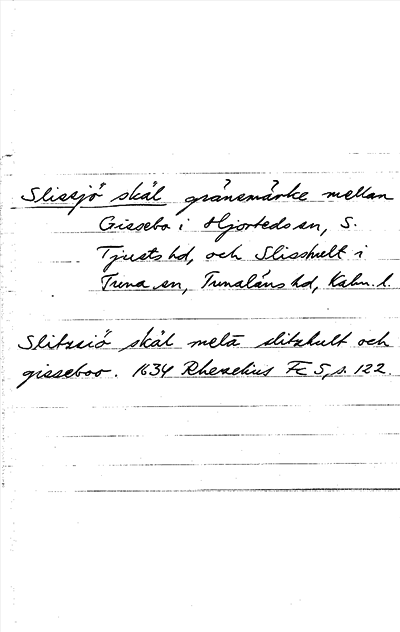 Slissjö skäl gränsmärke mellan
Gissebo i Hjorteds sn, S.
Tjusts hd, och Slisshult i
Tuna sn, Tunaläns hd, Kalm. l.
Slitzsiö skäl melä slitzhult och
gisseboo. 1634 Rhezelius Fc 5, s. 122.